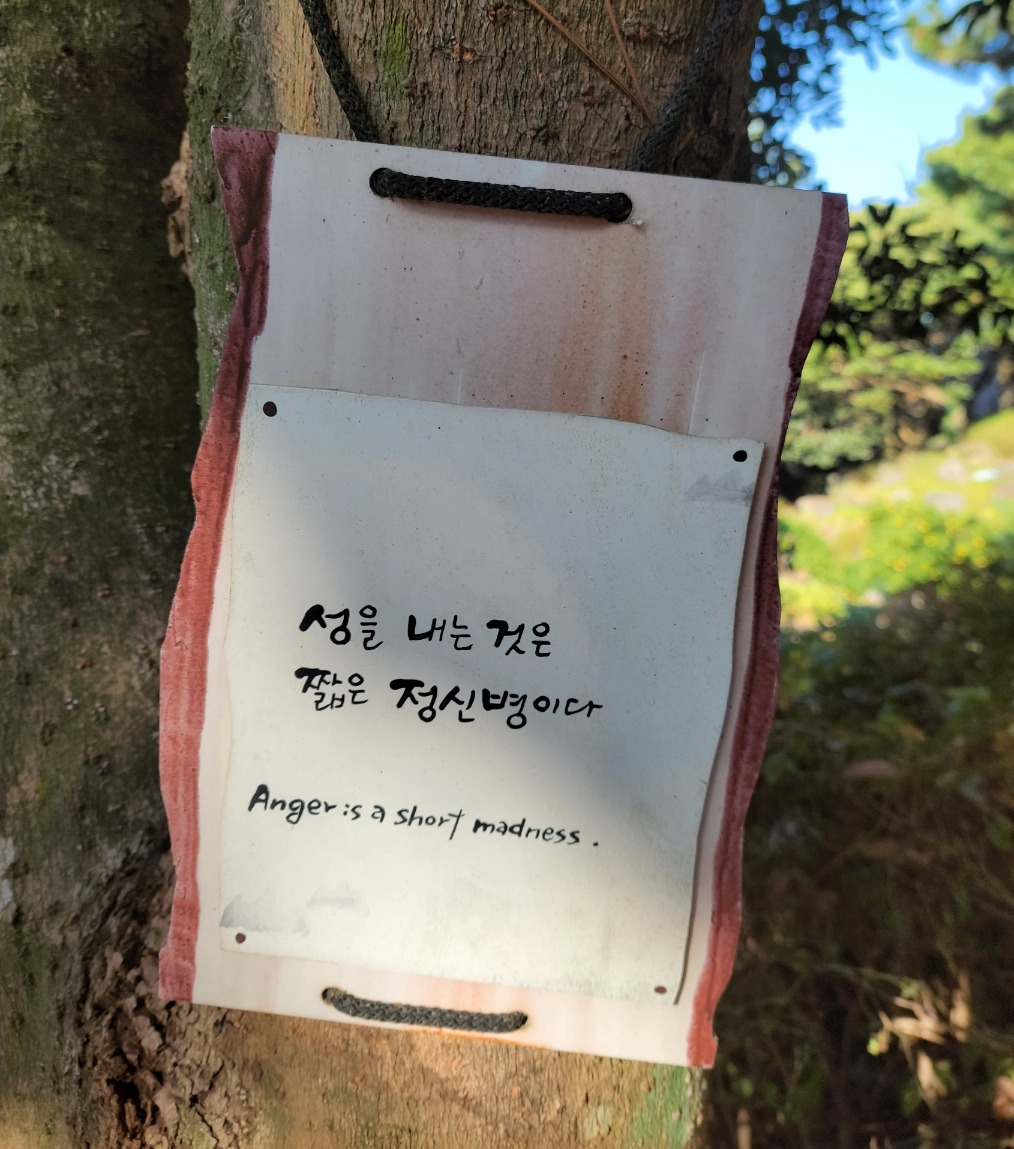 성을 내는 것은
짧은 정신병이다
Anger is a short madness.